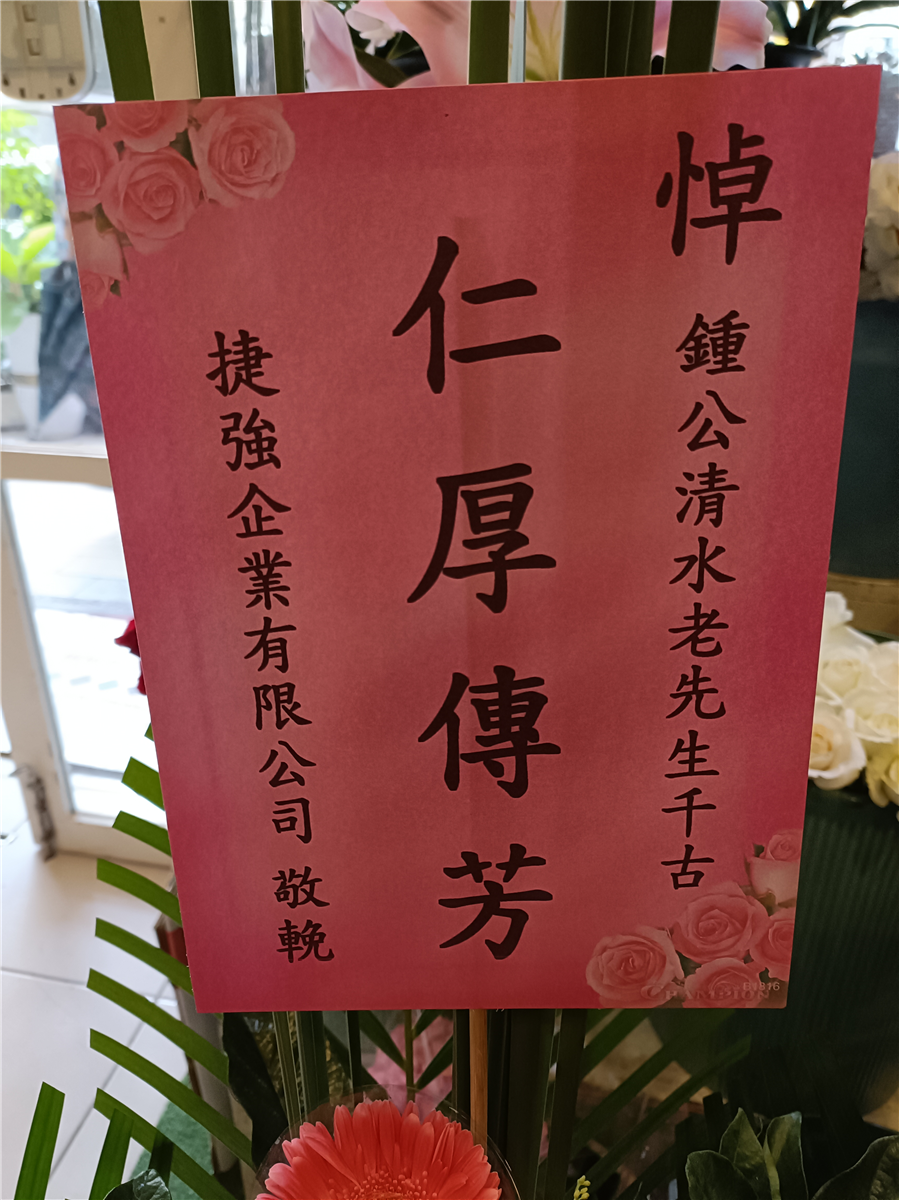 悼 鍾公清水老先生千古
仁厚傳芳
捷強企業有限公司 敬輓
CHAMPION